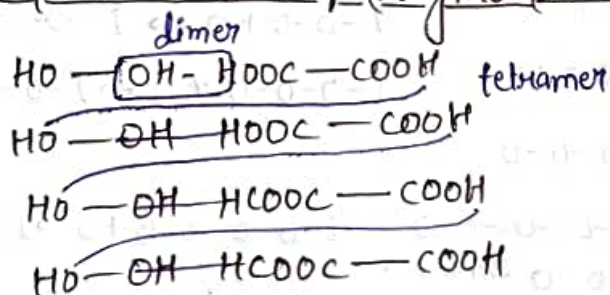 dimer
HO — OH - HOOC — COOH tetramer
HO — OH HOOC — COOH
HO — OH HCOOC — COOH
HO — OH HCOOC — COOH